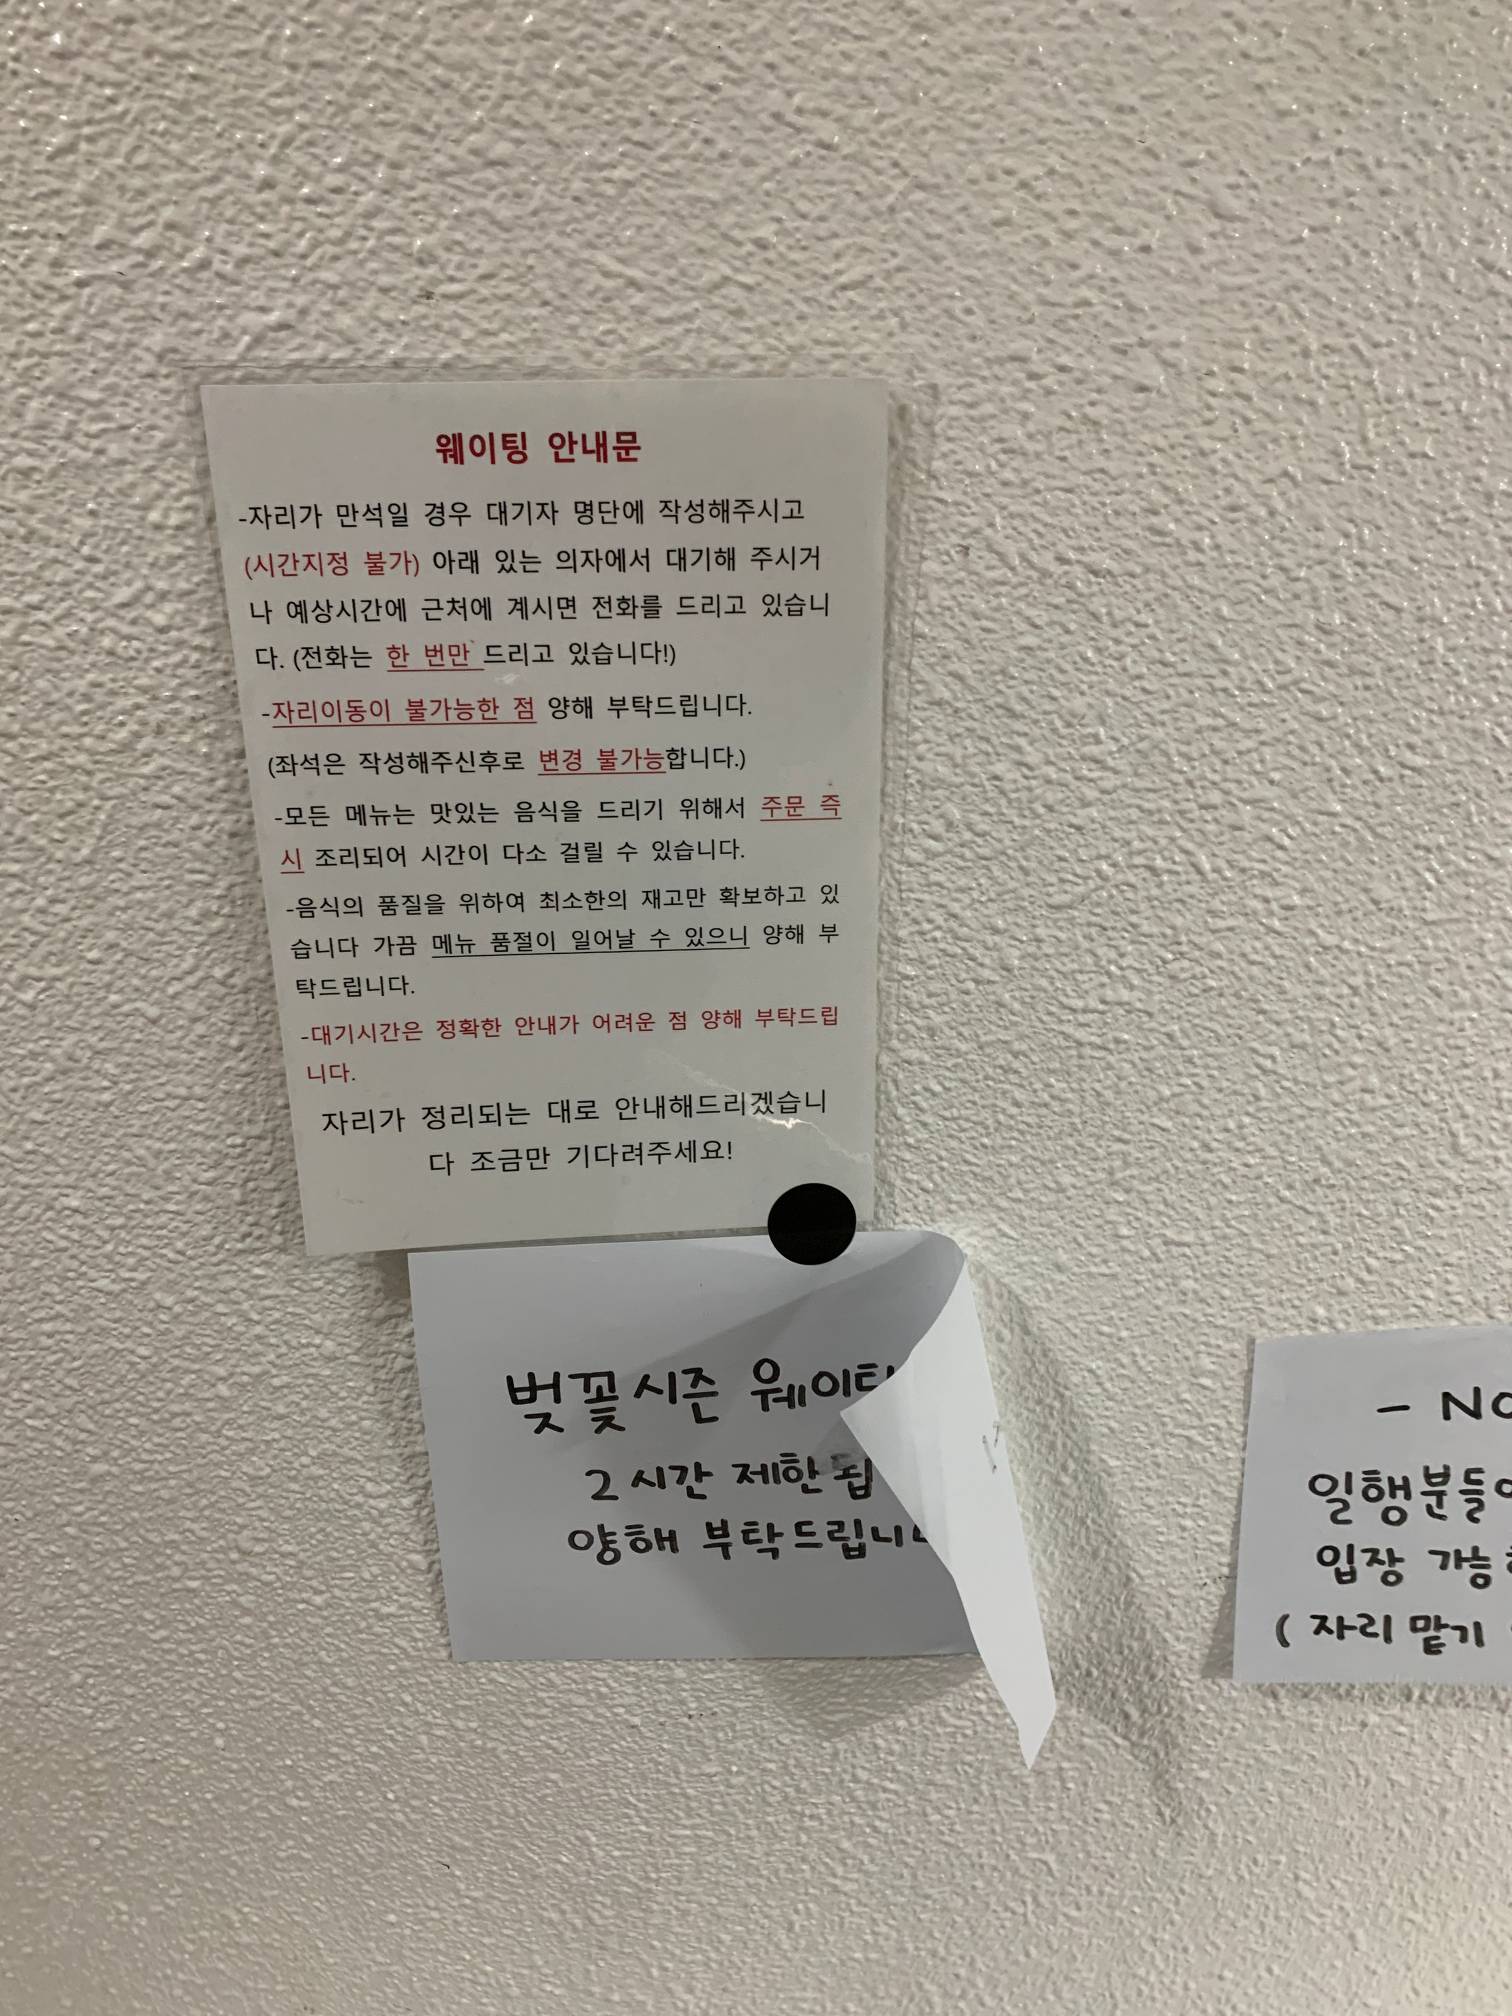 웨이팅 안내문
-자리가 만석일 경우 대기자 명단에 작성해주시고
(시간지정 불가) 아래 있는 의자에서 대기해 주시거
나 예상시간에 근처에 계시면 전화를 드리고 있습니
다. (전화는 한 번만 드리고 있습니다!)
-자리이동이 불가능한 점 양해 부탁드립니다.
(좌석은 작성해주신후로 변경 불가능합니다.)
-모든 메뉴는 맛있는 음식을 드리기 위해서 주문 즉
시 조리되어 시간이 다소 걸릴 수 있습니다.
-음식의 품질을 위하여 최소한의 재고만 확보하고 있
습니다 가끔 메뉴 품절이 일어날 수 있으니 양해 부
탁드립니다.
-대기시간은 정확한 안내가 어려운 점 양해 부탁드립
니다.
자리가 정리되는 대로 안내해드리겠습니
다 조금만 기다려주세요!
벚꽃시즌
2시간 제한
양해
일행분들
입장
( 자리 맡기